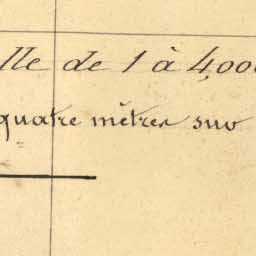 lle de 1 à 4,000
quatre mètres sur